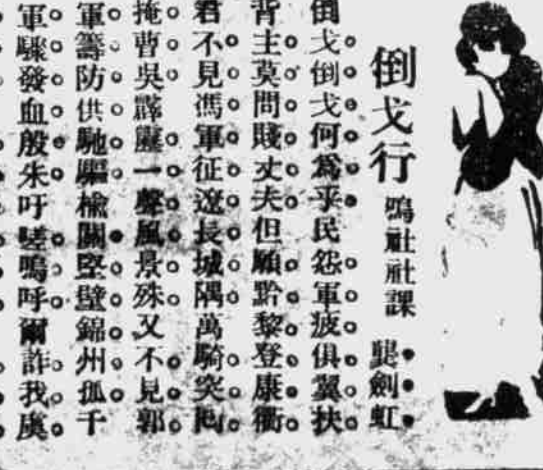 倒戈行 鳴社社課 龔劍虹
倒戈倒戈何爲乎民怨軍疲俱翼扶
背主莫問賤丈夫但願黔黎登康衢
君不見馮軍征遼長城隅萬騎突
掩曹吳霹靂一聲風景殊又不見郭
軍籌防供馳驅楡關堅壁錦州孤千
軍驟發血般朱吁嗟嗚呼爾詐我虞